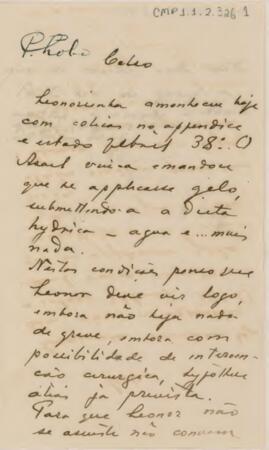 CMP 1.1.2.326 1
P. Lobo
Celso
Leonorzinha amanheceu hoje
com colicas no appendice
e estado febril 38º. O
Assael veiu e mandou
que se applicasse gelo,
submettendo-a a dieta
hydrica — agua e... mais
nada.
Nestas condições penso que
Leonor deve vir logo,
embora não seja nada
de grave, embora com
possibilidade de interven-
ção cirurgica, hypothese
aliás já prevista.
Para que Leonor não
se assuste não convem